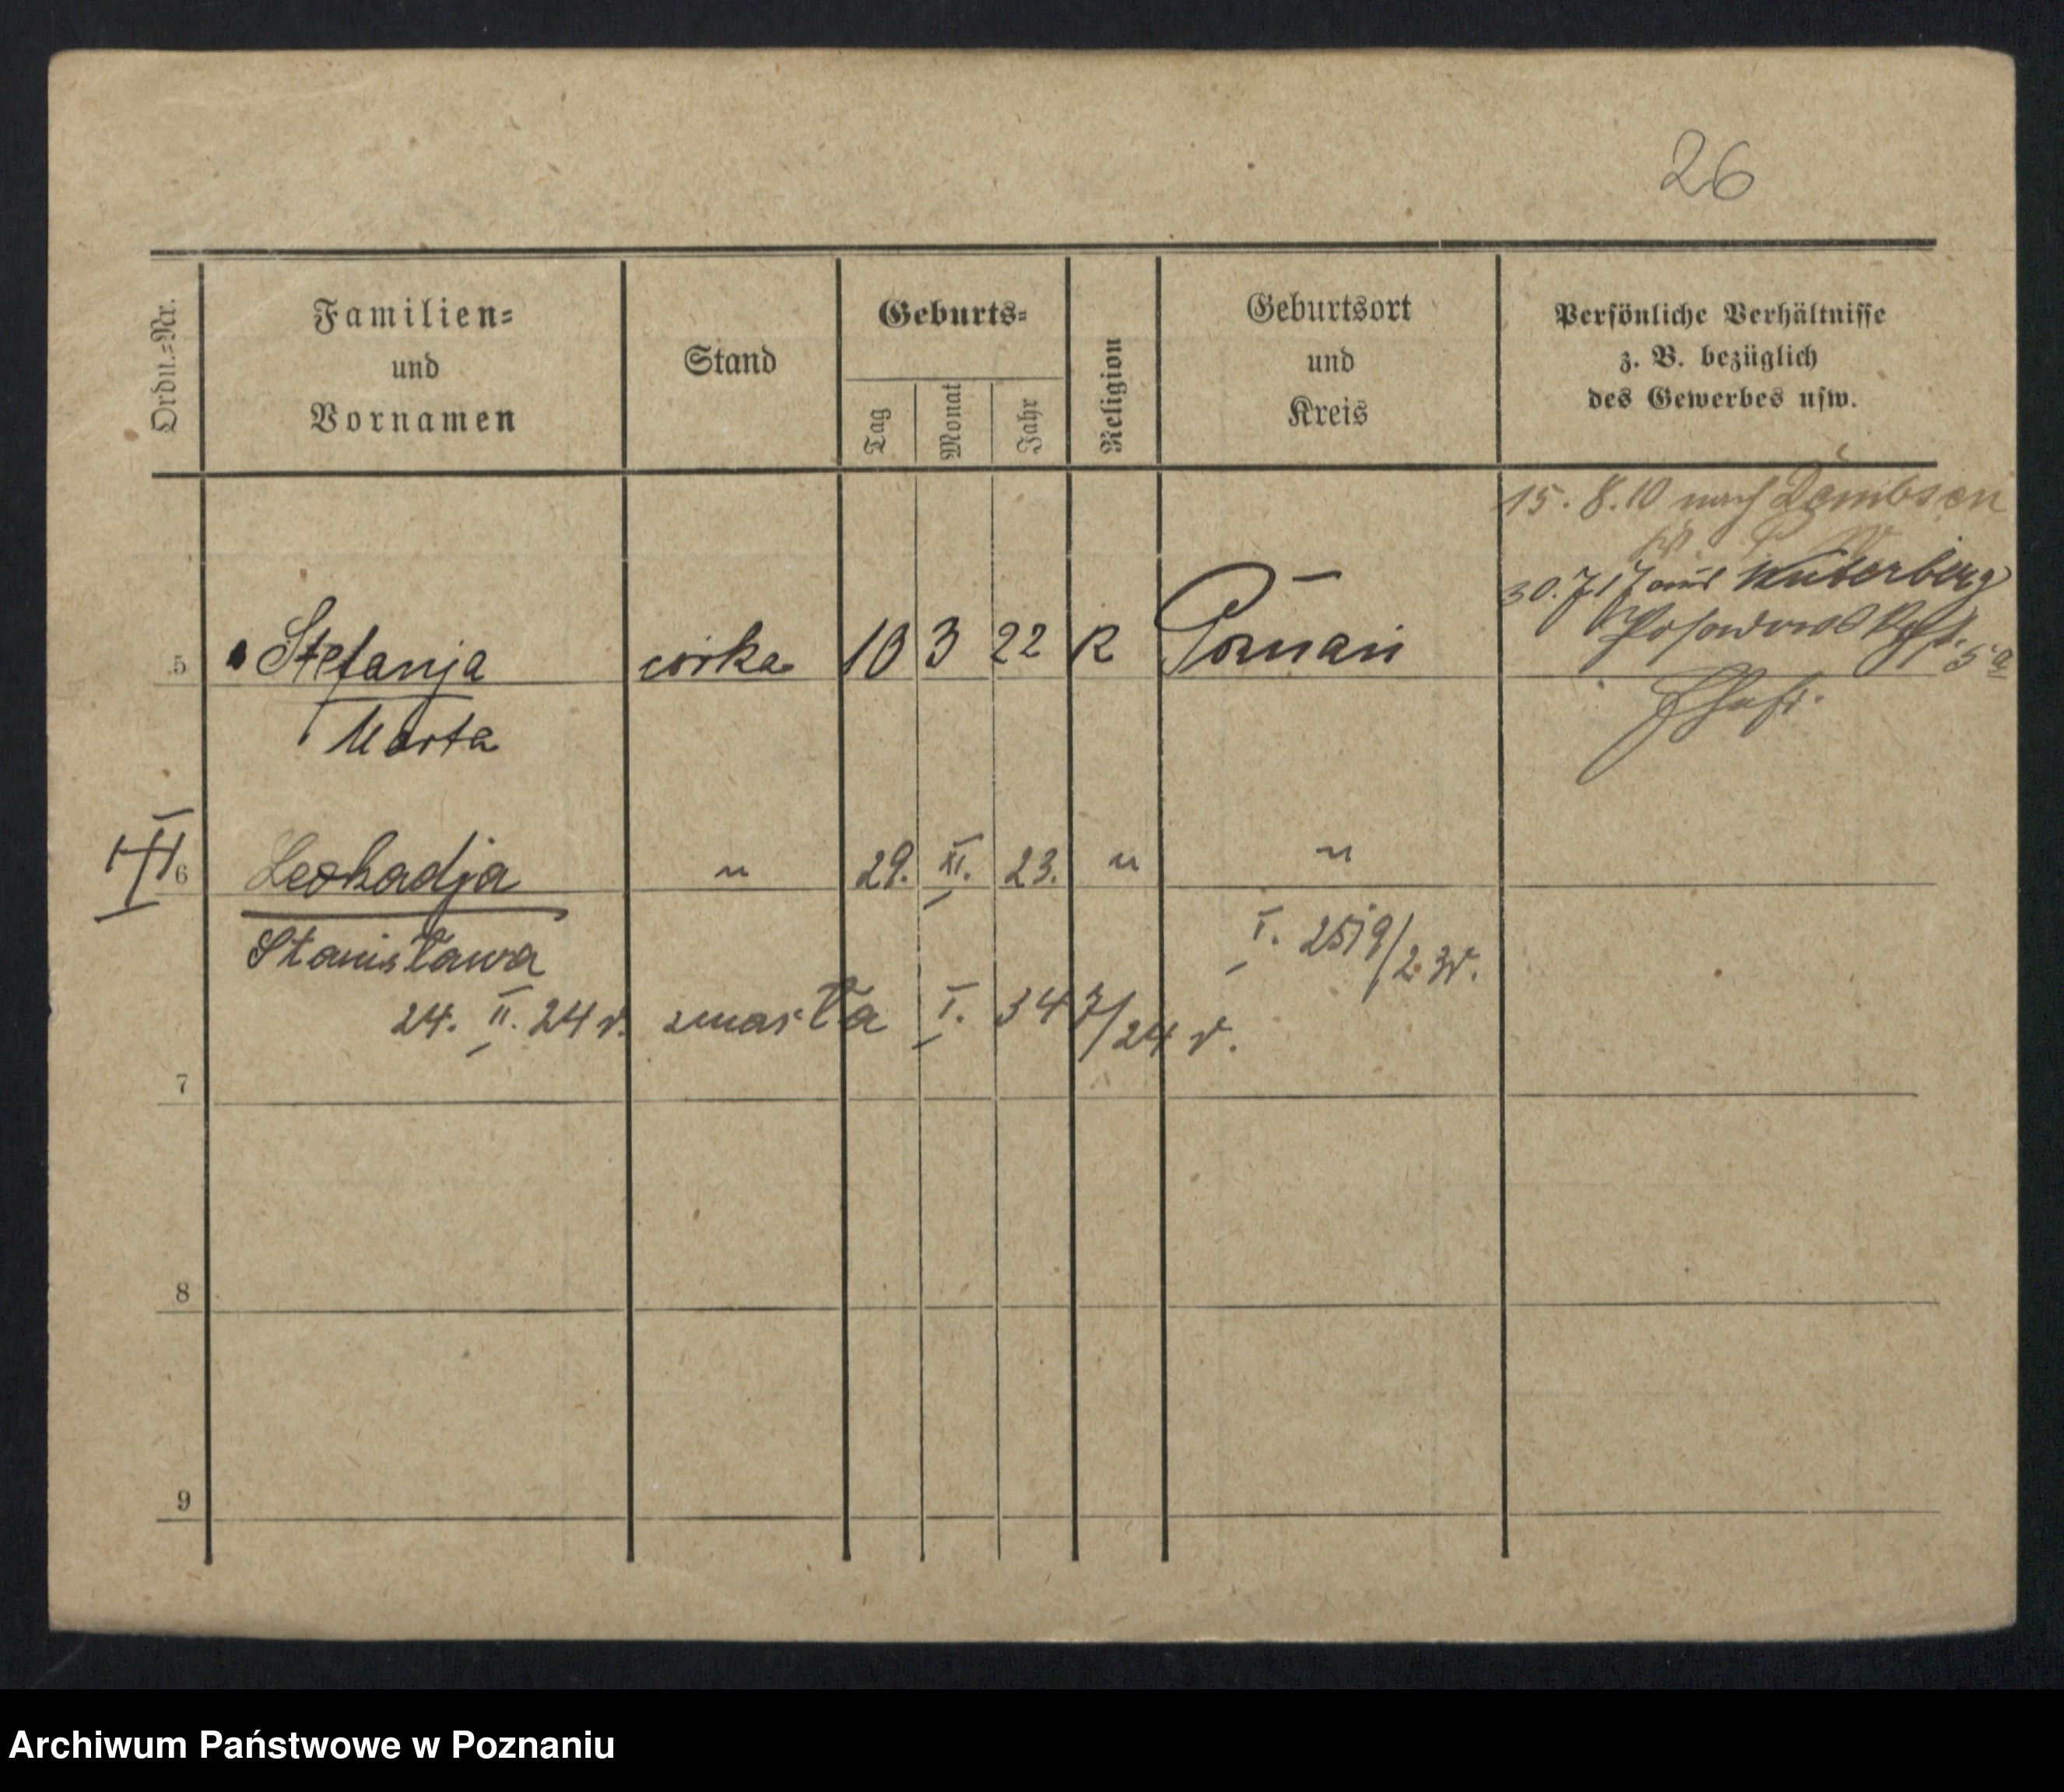 26
Ordn.=Nr.
Familien=
und
Vornamen
Stand
Geburts=
Tag
Monat
Jahr
Religion
Geburtsort
und
Kreis
Persönliche Verhältnisse
z. B. bezüglich
des Gewerbes usw.
15. 8. 10 nach Dembsen
30. 7. 17 aus Wüterberg
5a
5 Stefanja córka 10 3 22 R Poznań
Marta
6 Leokadja " 29. XI. 23. " "
Stanisława
I. 2519/23 r.
24. II. 24 r. zmarła I. 347/24 r.
7
8
9
Archiwum Państwowe w Poznaniu